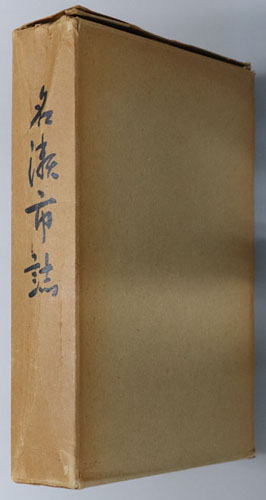 名瀬市誌